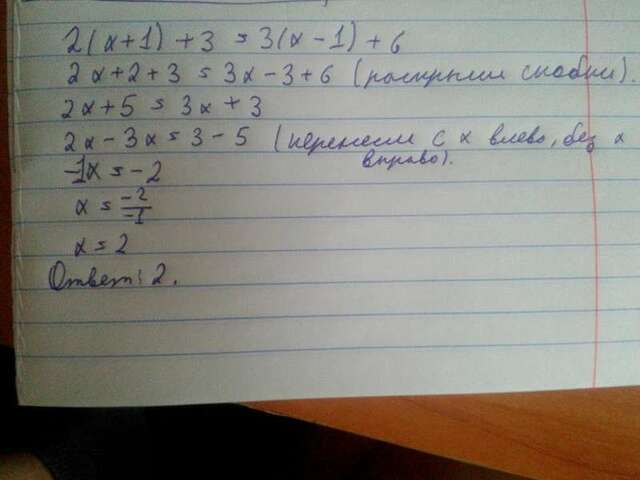 2(x+1)+3=3(x-1)+6
2x+2+3=3x-3+6 (раскрыли скобки).
2x+5=3x+3
2x-3x=3-5 (перенесли с x влево, без x
вправо).
-1x=-2
x=\frac{-2}{-1}
x=2
Ответ: 2.